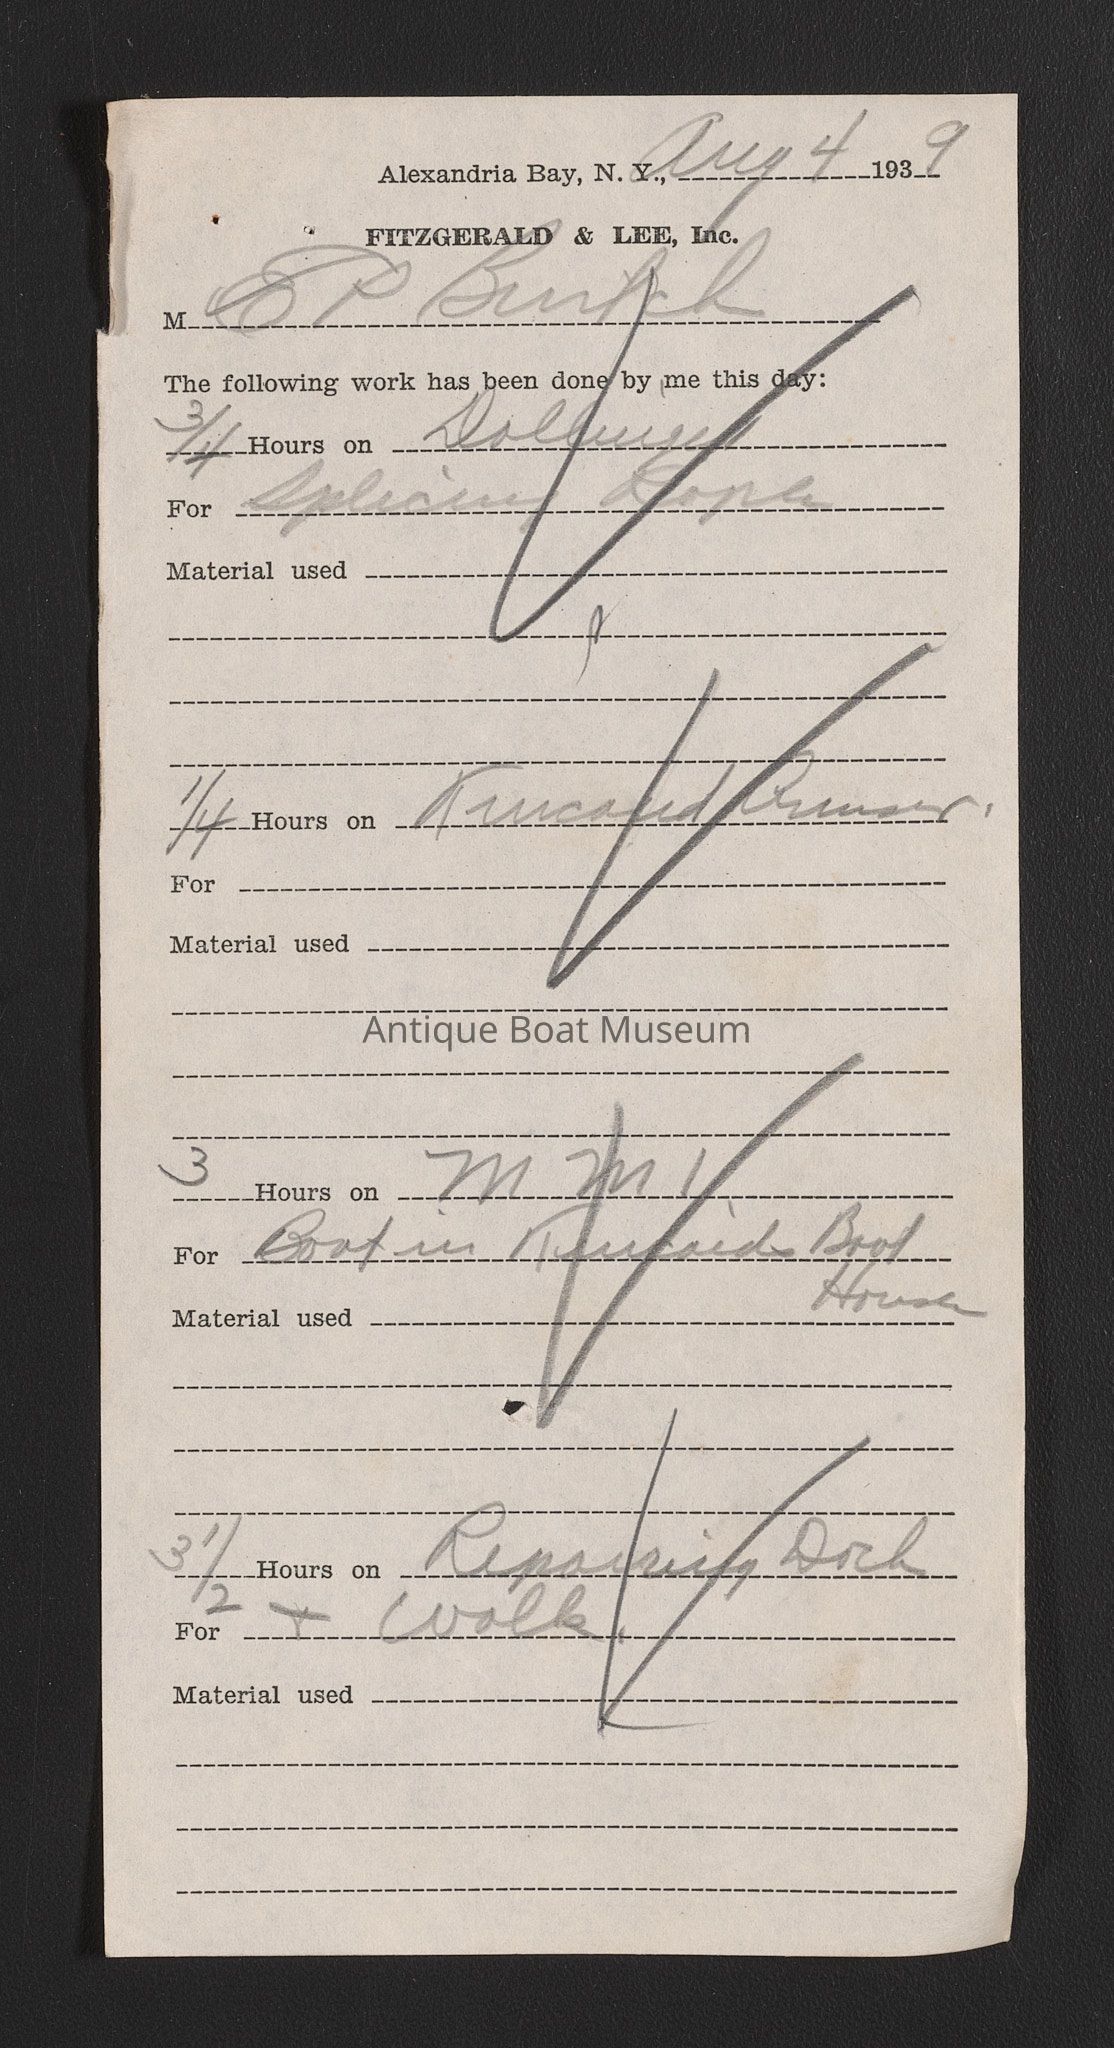 Alexandria Bay, N. Y., Aug 4 1939
FITZGERALD & LEE, Inc.
M E P Burtch
The following work has been done by me this day:
3/4 Hours on
For Splicing Ropes
Material used
1/4 Hours on Kincaid
For
Material used
Antique Boat Museum
3 Hours on M M 1
For Boat in Kincaids Boat
House
Material used
3 1/2 Hours on Repairing Dock
For + Walk.
Material used